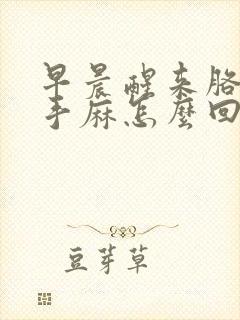 早晨醒来胳
手麻怎麼回
豆芽草